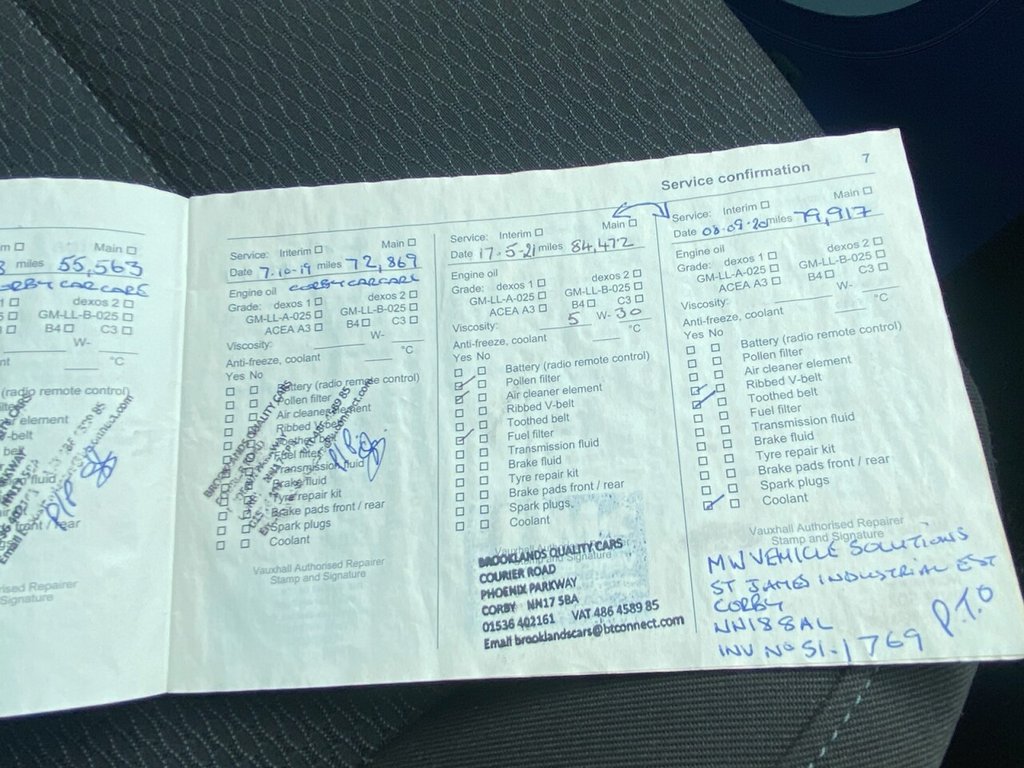 Service confirmation 7
m ☐ Main ☐
miles 55,563
CORBY CAR CARE
1 ☐ dexos 2 ☐
5 ☐ GM-LL-B-025 ☐
☐ B4 ☐ C3 ☐
W-
nt °C
(radio remote control)
element
-belt
belt
fluid
front / rear
P/P
rised Repairer
Signature
Service: Interim ☐ Main ☐
Date 7.10-19 miles 72,869
Engine oil CORBY CAR CARE
Grade: dexos 1 ☐ dexos 2 ☐
GM-LL-A-025 ☐ GM-LL-B-025 ☐
ACEA A3 ☐ B4 ☐ C3 ☐
Viscosity: W-
Anti-freeze, coolant °C
Yes No
Battery (radio remote control)
Pollen filter
Air cleaner element
Ribbed
Fuel filter
Transmission fluid
Brake fluid
Tyre repair kit
Brake pads front / rear
Spark plugs
Coolant
BROOKLANDS QUALITY CARS
Vauxhall Authorised Repairer
Stamp and Signature
Service: Interim ☐ Main ☐
Date 17-5-21 miles 84,472
Engine oil
Grade: dexos 1 ☐ dexos 2 ☐
GM-LL-A-025 ☐ GM-LL-B-025 ☐
ACEA A3 ☐ B4 ☐ C3 ☐
Viscosity: 5 W- 30
Anti-freeze, coolant °C
Yes No
Battery (radio remote control)
Pollen filter
Air cleaner element
Ribbed V-belt
Toothed belt
Fuel filter
Transmission fluid
Brake fluid
Tyre repair kit
Brake pads front / rear
Spark plugs
Coolant
Vauxhall Authorised Repairer
Stamp and Signature
BROOKLANDS QUALITY CARS
COURIER ROAD
PHOENIX PARKWAY
CORBY NN17 5BA
01536 402161 VAT 486 4589 85
Email brooklandscars@btconnect.com
Service: Interim ☐ Main ☐
Date 08-09-20 miles 79,917
Engine oil
Grade: dexos 1 ☐ dexos 2 ☐
GM-LL-A-025 ☐ GM-LL-B-025 ☐
ACEA A3 ☐ B4 ☐ C3 ☐
Viscosity: W-
Anti-freeze, coolant °C
Yes No
Battery (radio remote control)
Pollen filter
Air cleaner element
Ribbed V-belt
Toothed belt
Fuel filter
Transmission fluid
Brake fluid
Tyre repair kit
Brake pads front / rear
Spark plugs
Coolant
Vauxhall Authorised Repairer
Stamp and Signature
MW VEHICLE SOLUTIONS
ST JAMES INDUSTRIAL EST
CORBY
NN18 8AL
INV NO SI-1769 P.T.O